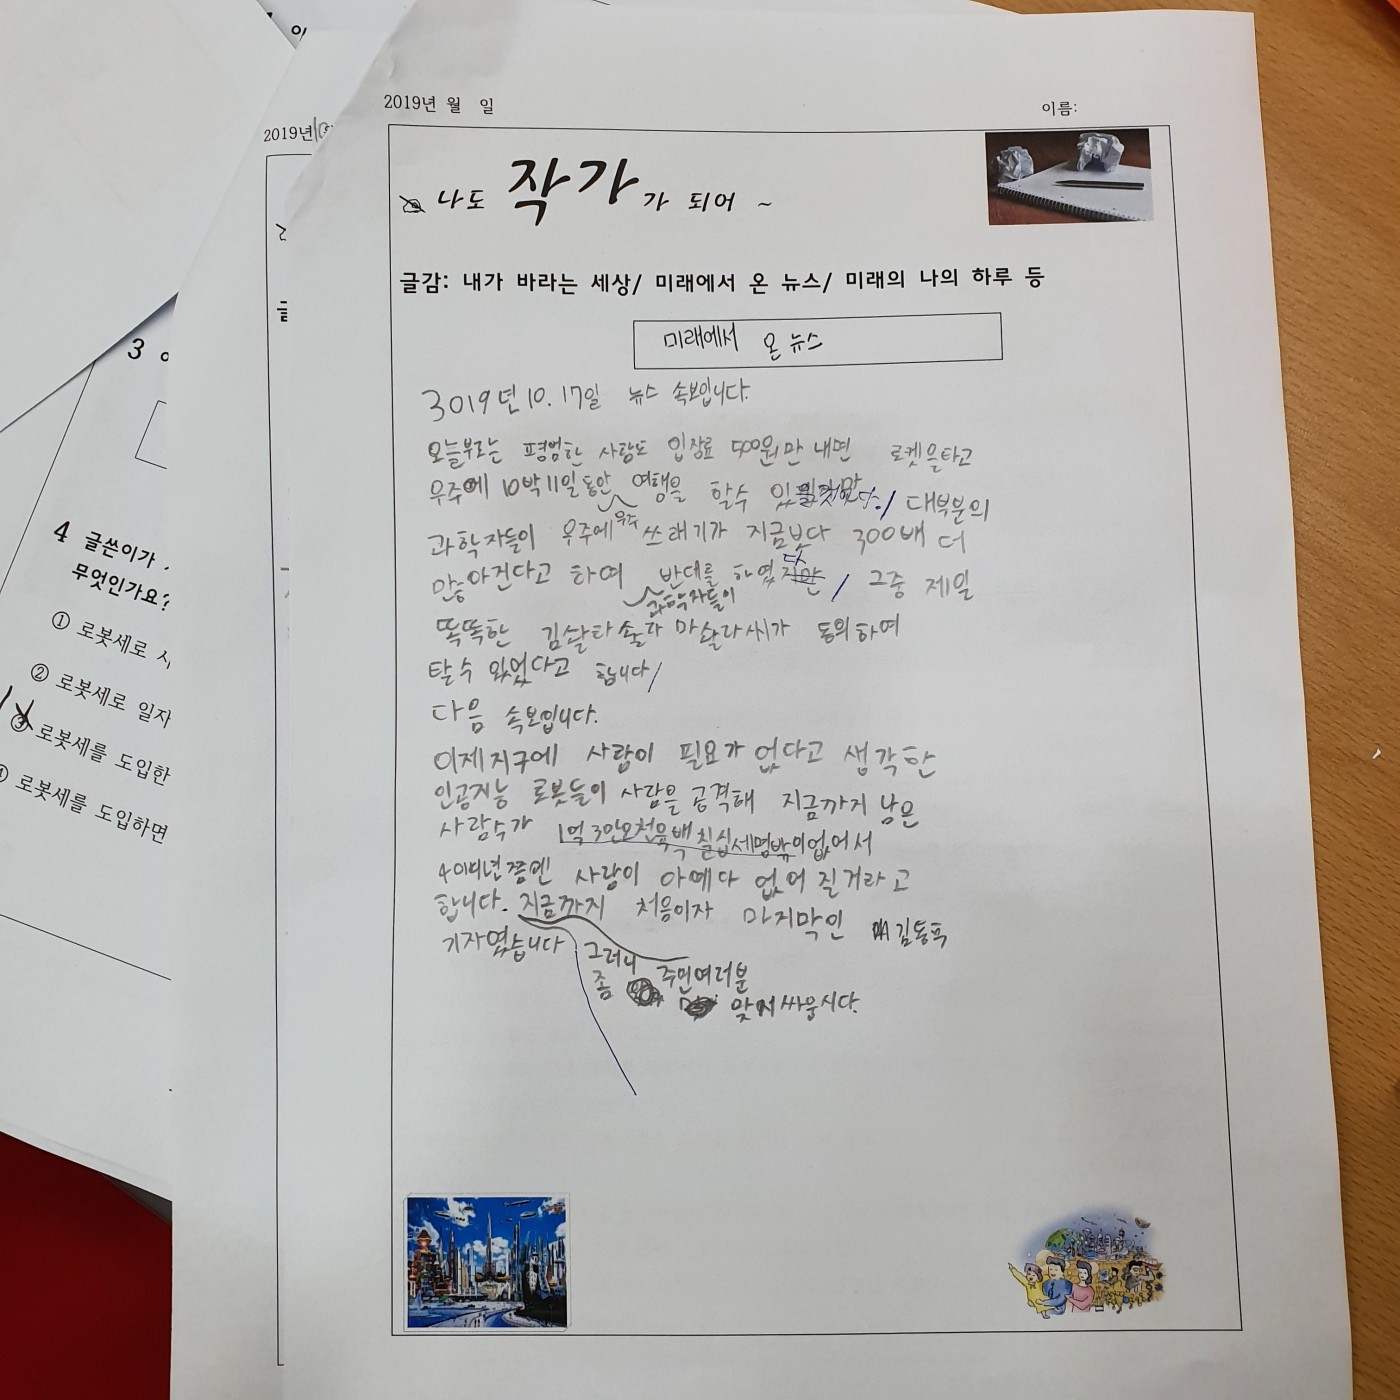 2019년 월 일
이름:
2019년
나도 작가가 되어 ~
글감: 내가 바라는 세상/ 미래에서 온 뉴스/ 미래의 나의 하루 등
미래에서 온 뉴스
3019년 10. 17일 뉴스 속보입니다.
오늘부로는 평범한 사람도 입장료 500원만 내면 로켓을타고
우주에 10박 11일 동안 여행을 할수 대부분의
우주
과학자들이 우주에 쓰래기가 지금보다 300배 더
만아진다고 하여 반대를 하였 다 지만 그중 제일
과학자들이
똑똑한 김살라술라 마살라씨가 동의하여
탈수 있었다고 합니다
다음 속보입니다.
이제지구에 사람이 필요가 없다고 생각한
인공지능 로봇들이 사람을 공격해 지금까지 남은
사람수가 1억 3만오천육백칠십세명밖이없어서
쯤엔 사람이 아예다 없어 질거라고
합니다. 지금까지 처음이자 마지막인 김동푹
기자였습니다 그러니 주민여러분
좀 맞서싸웁시다.
3
4 글쓴이가
무엇인가요?
① 로봇세로
② 로봇세로 일자
③ 로봇세를 도입한
로봇세를 도입하면